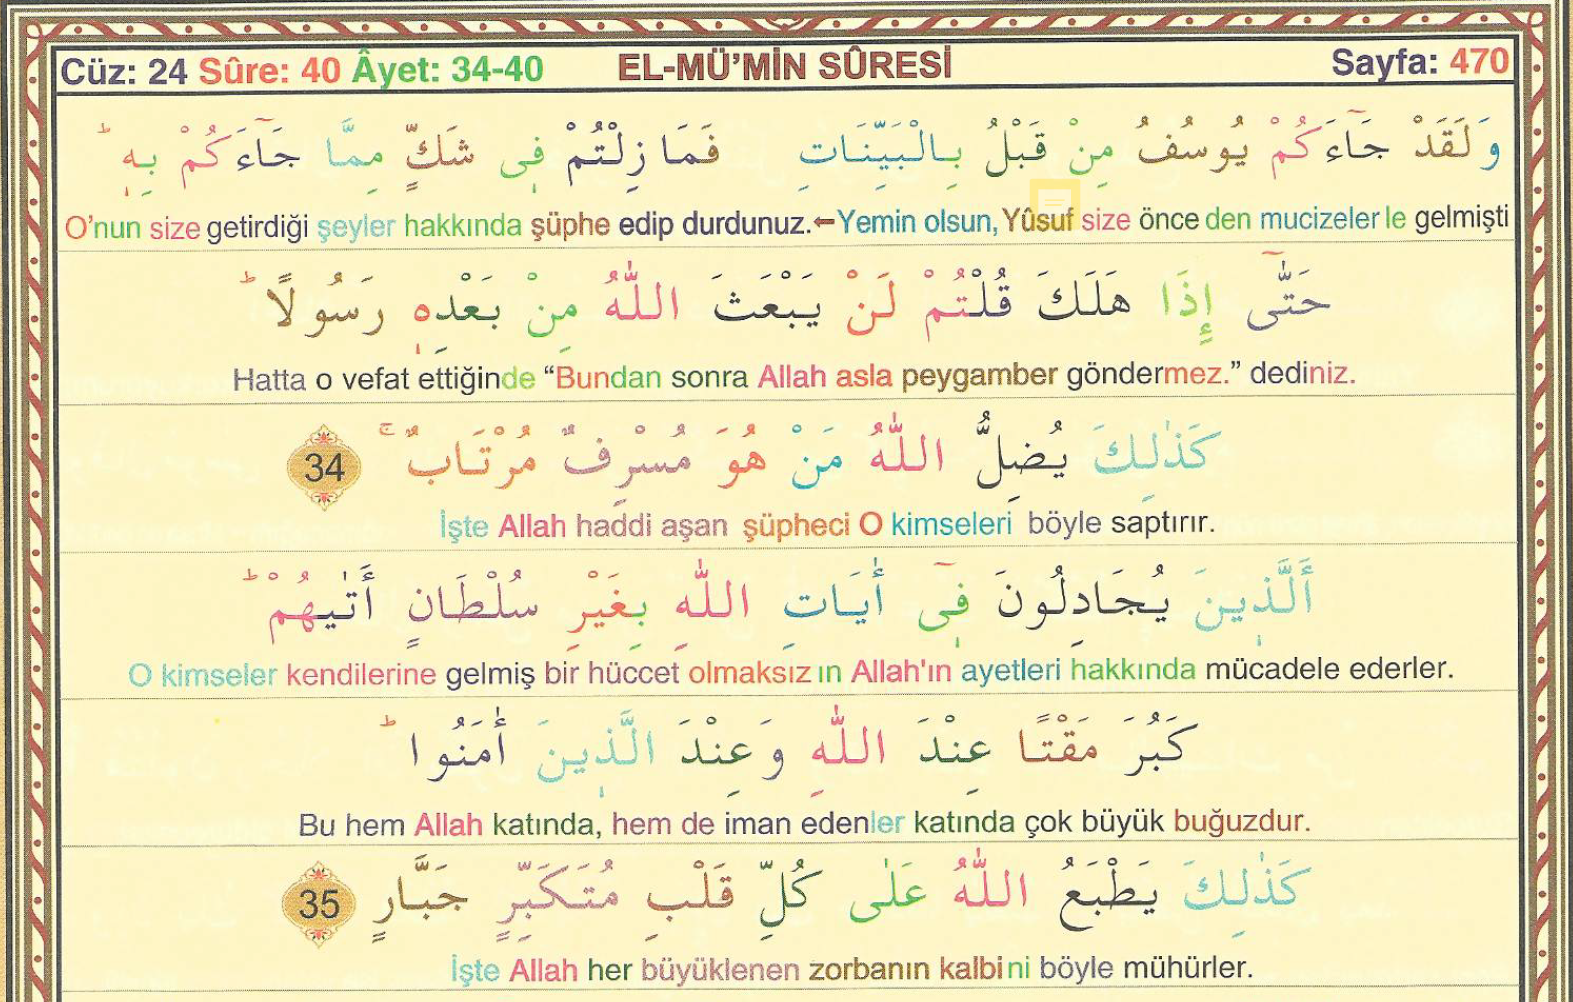 Cüz: 24 Sûre: 40 Âyet: 34-40 EL-MÜ’MİN SÛRESİ Sayfa: 470
وَلَقَدْ جَٓاءَكُمْ يُوسُفُ مِنْ قَبْلُ بِالْبَيِّنَاتِ فَمَا زِلْتُمْ ف۪ي شَكٍّ مِمَّا جَٓاءَكُمْ بِه۪ۜ
O’nun size getirdiği şeyler hakkında şüphe edip durdunuz.←Yemin olsun, Yûsuf size önceden mucizelerle gelmişti
حَتّٰٓى إِذَا هَلَكَ قُلْتُمْ لَنْ يَبْعَثَ اللّٰهُ مِنْ بَعْدِه۪ رَسُولًاۜ
Hatta o vefat ettiğinde “Bundan sonra Allah asla peygamber göndermez.” dediniz.
كَذٰلِكَ يُضِلُّ اللّٰهُ مَنْ هُوَ مُسْرِفٌ مُرْتَابٌۚ 34
İşte Allah haddi aşan şüpheci O kimseleri böyle saptırır.
أَلَّذ۪ينَ يُجَادِلُونَ ف۪ٓي أٰيَاتِ اللّٰهِ بِغَيْرِ سُلْطَانٍ أَتٰيهُمْۜ
O kimseler kendilerine gelmiş bir hüccet olmaksızın Allah'ın ayetleri hakkında mücadele ederler.
كَبُرَ مَقْتًا عِنْدَ اللّٰهِ وَعِنْدَ الَّذ۪ينَ أٰمَنُواۜ
Bu hem Allah katında, hem de iman edenler katında çok büyük buğuzdur.
كَذٰلِكَ يَطْبَعُ اللّٰهُ عَلٰى كُلِّ قَلْبِ مُتَكَبِّرٍ جَبَّارٍ 35
İşte Allah her büyüklenen zorbanın kalbini böyle mühürler.